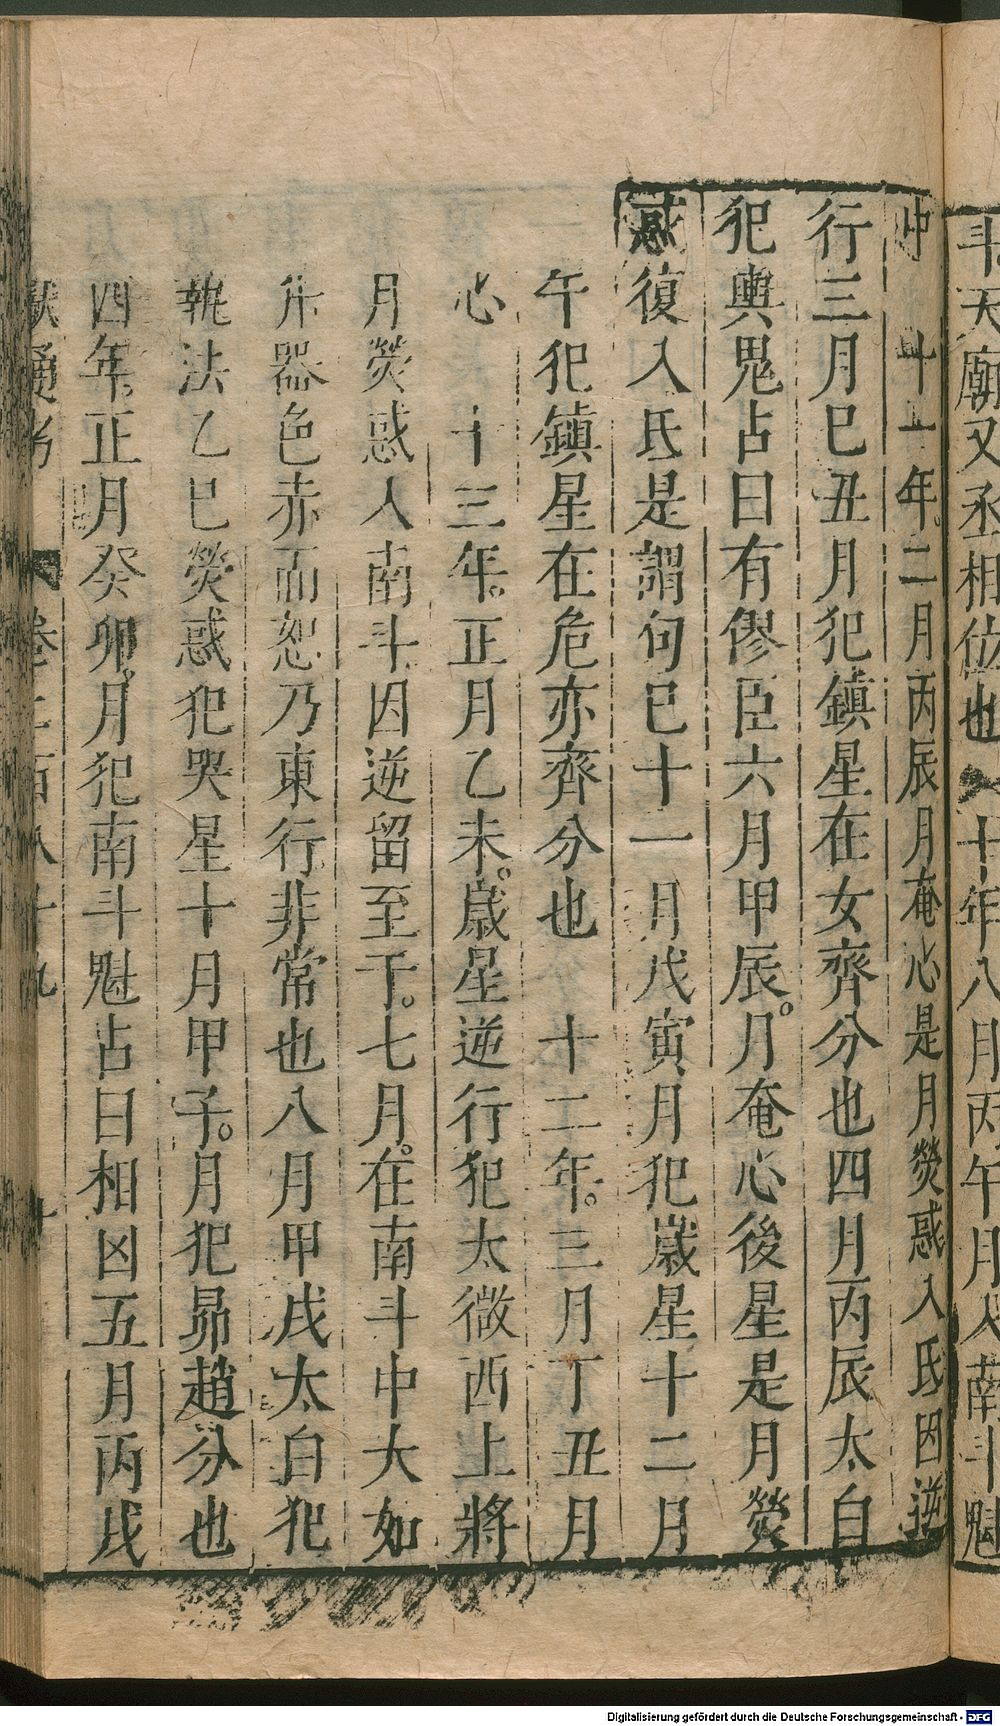 斗天廟又丞相位也 十年八月丙午月入南斗魁
中 十一年二月丙辰月奄心是月熒惑入氐因逆
行三月巳丑月犯鎮星在女齊分也四月丙辰太白
犯輿鬼占曰有僇臣六月甲辰月奄心後星是月熒
惑復入氐是謂句巳十一月戊寅月犯歲星十二月
午犯鎮星在危亦齊分也 十二年三月丁丑月
心 十三年正月乙未歲星逆行犯太微西上將
月熒惑入南斗因逆留至于七月在南斗中大如
升器色赤而恕乃東行非常也八月甲戌太白犯
執法乙巳熒惑犯哭星十月甲子月犯昴趙分也
四年正月癸卯月犯南斗魁占曰相凶五月丙戌
獻通考 卷二百八十九 十
Digitalisierung gefördert durch die Deutsche Forschungsgemeinschaft - DFG